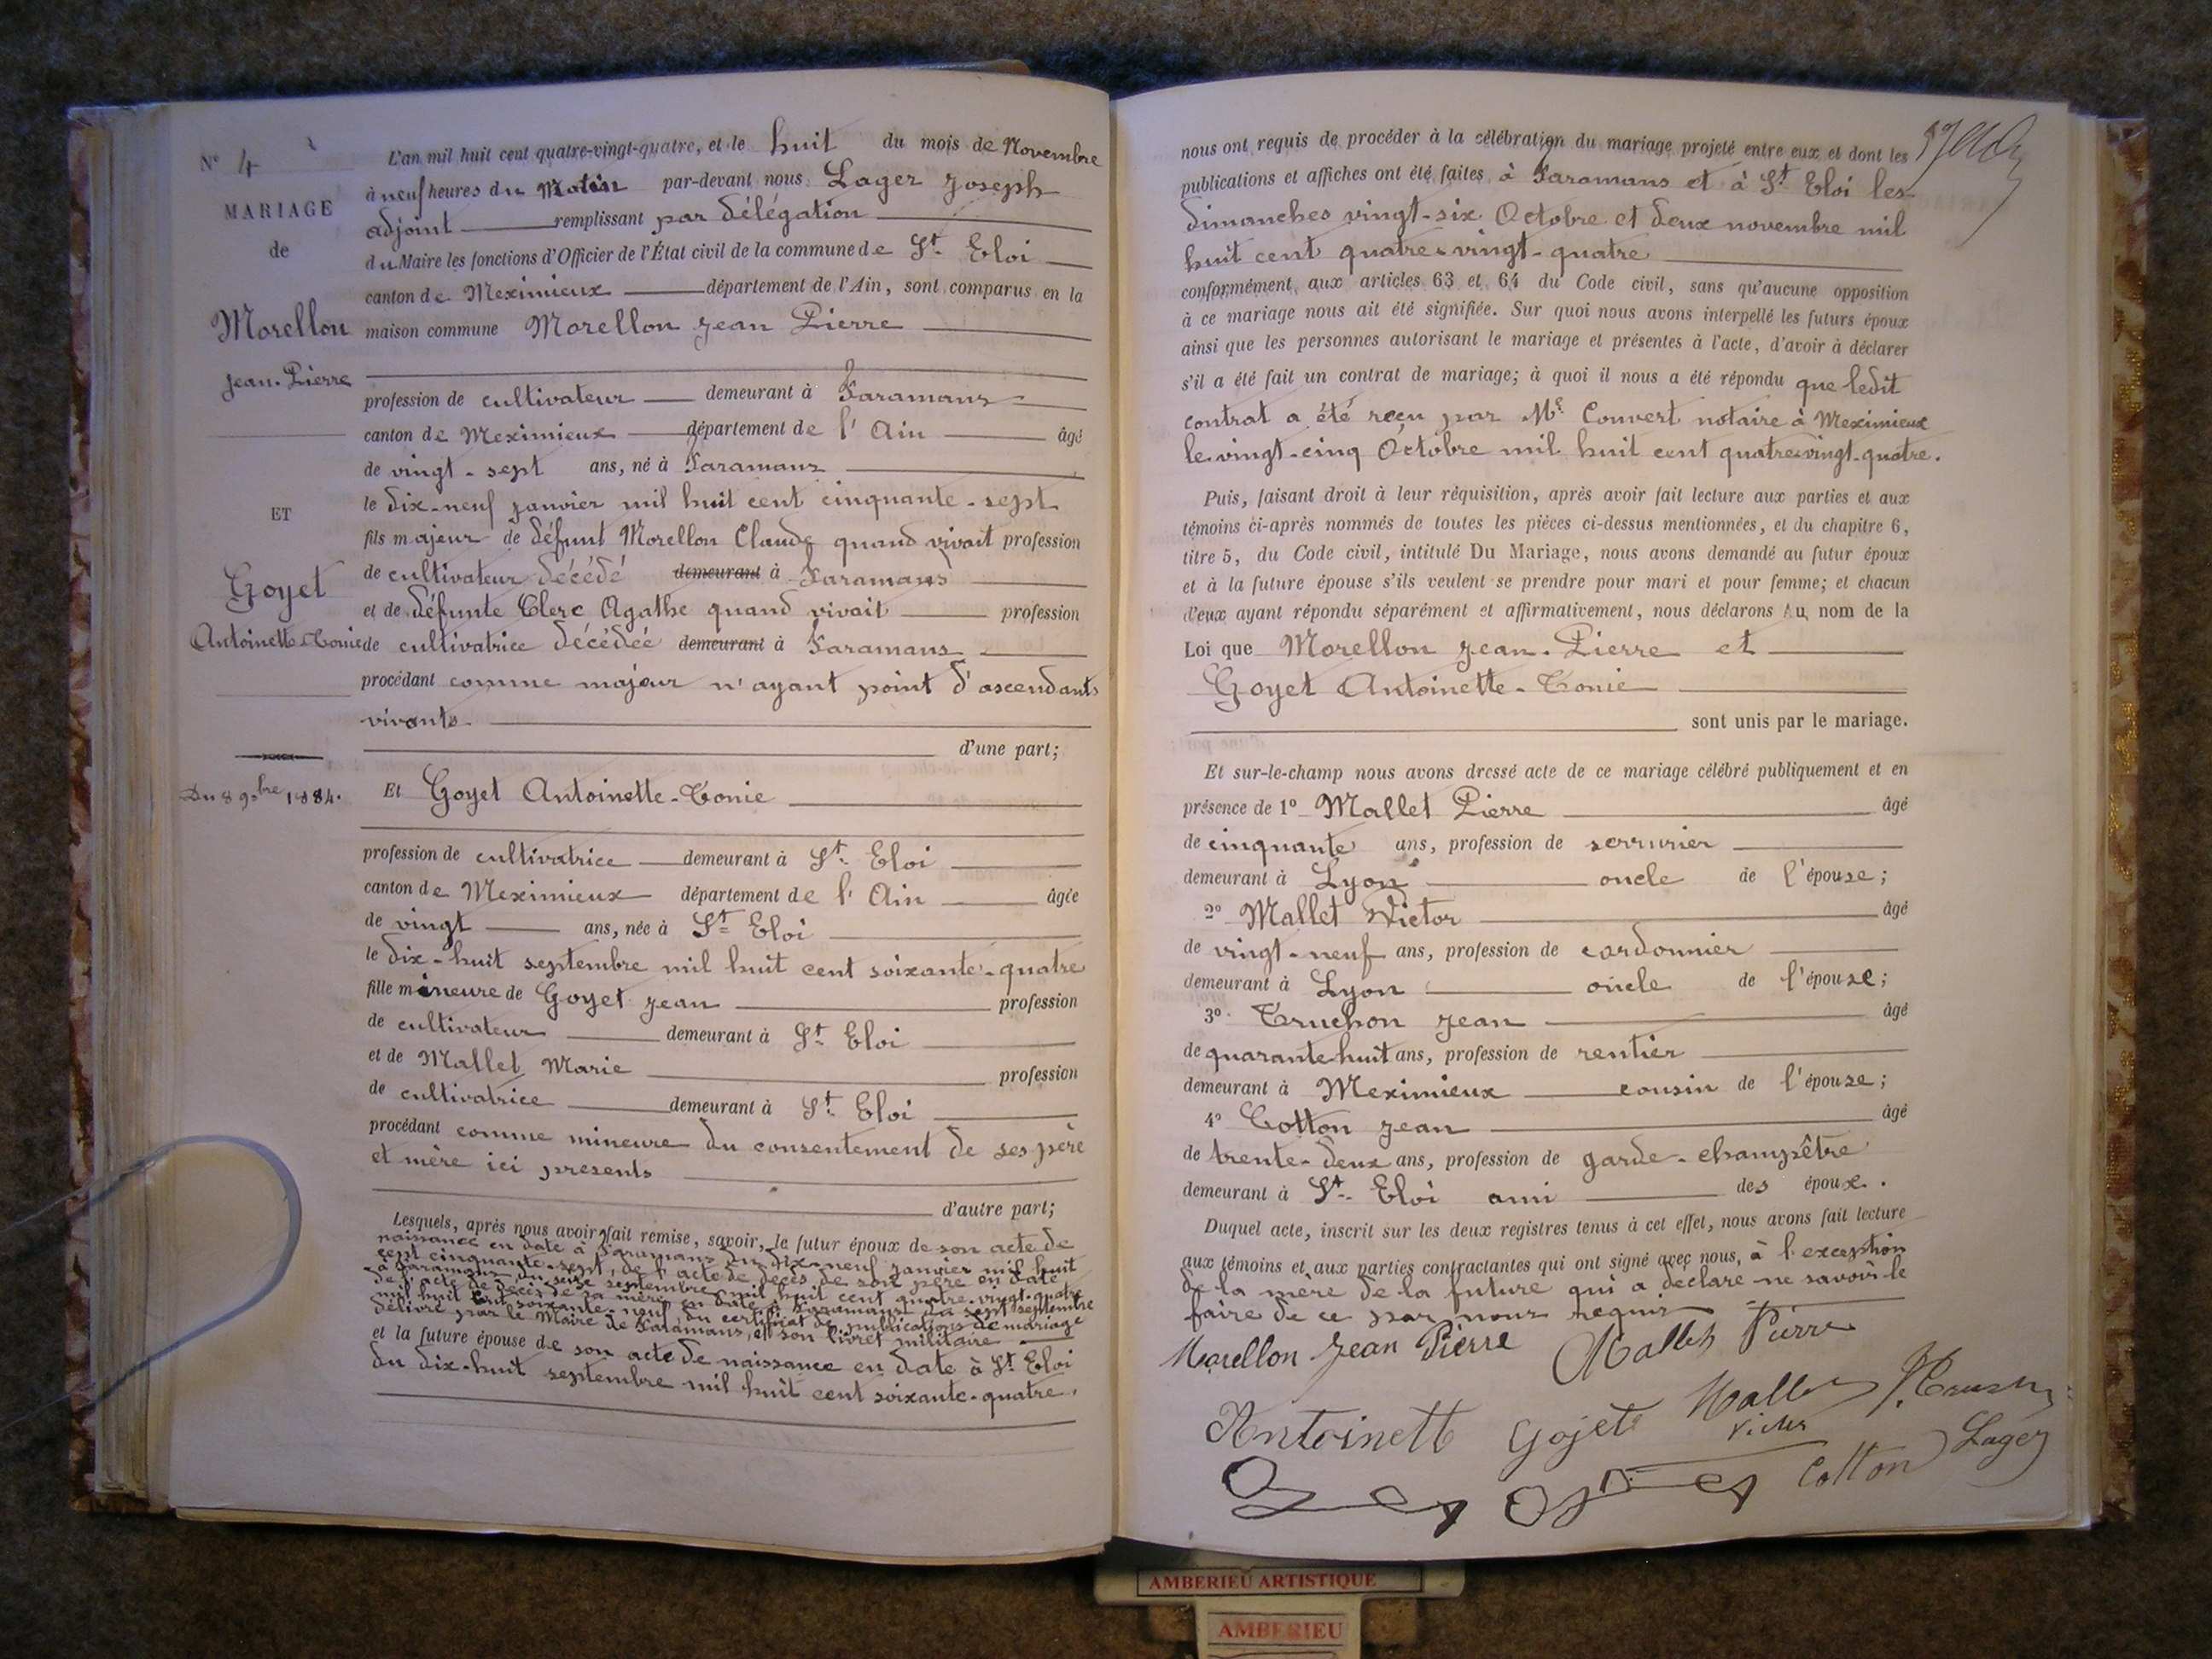 N° 4
MARIAGE
de
Morellon
Jean-Pierre
ET
Goyet
Antoinette-Tonie
Du 8 9bre 1884.
L'an mil huit cent quatre-vingt-quatre, et le huit du mois de Novembre
à neuf heures du Matin par-devant nous Lager Joseph
adjoint remplissant par délégation
du Maire les fonctions d'Officier de l'État civil de la commune de St. Eloi
canton de Meximieux département de l'Ain, sont comparus en la
maison commune Morellon Jean Pierre
profession de cultivateur demeurant à Faramans
canton de Meximieux département de l'Ain âgé
de vingt-sept ans, né à Faramans
le dix-neuf janvier mil huit cent cinquante-sept
fils majeur de défunt Morellon Claude quand vivait profession
de cultivateur décédé demeurant à Faramans
et de défunte Clerc Agathe quand vivait profession
de cultivatrice décédée demeurant à Faramans
procédant comme majeur n'ayant point d'ascendants
vivants.
d'une part;
Et Goyet Antoinette-Tonie
profession de cultivatrice demeurant à St. Eloi
canton de Meximieux département de l'Ain âgée
de vingt ans, née à St. Eloi
le dix-huit septembre mil huit cent soixante-quatre
fille mineure de Goyet Jean profession
de cultivateur demeurant à St. Eloi
et de Mallet Marie profession
de cultivatrice demeurant à St. Eloi
procédant comme mineure du consentement de ses père
et mère ici présents
d'autre part;
Lesquels, après nous avoir fait remise, savoir, le futur époux de son acte de
naissance en date à Faramans du dix-neuf janvier mil huit
cent cinquante-sept, de l'acte de décès de son père en date
à Faramans du seize septembre mil huit cent quatre-vingt-quatre
de l'acte de décès de sa mère en date à Faramans du sept septembre
mil huit cent soixante-neuf du certificat de publications de mariage
délivré par le Maire de Faramans, et son livret militaire
et la future épouse de son acte de naissance en date à St. Eloi
du dix-huit septembre mil huit cent soixante-quatre.
nous ont requis de procéder à la célébration du mariage projeté entre eux et dont les
publications et affiches ont été faites à Faramans et à St. Eloi les
dimanches vingt-six Octobre et deux novembre mil
huit cent quatre-vingt-quatre
conformément aux articles 63 et 64 du Code civil, sans qu'aucune opposition
à ce mariage nous ait été signifiée. Sur quoi nous avons interpellé les futurs époux
ainsi que les personnes autorisant le mariage et présentes à l'acte, d'avoir à déclarer
s'il a été fait un contrat de mariage; à quoi il nous a été répondu que ledit
contrat a été reçu par Me. Convert notaire à Meximieux
le vingt-cinq Octobre mil huit cent quatre-vingt-quatre.
Puis, faisant droit à leur réquisition, après avoir fait lecture aux parties et aux
témoins ci-après nommés de toutes les pièces ci-dessus mentionnées, et du chapitre 6,
titre 5, du Code civil, intitulé Du Mariage, nous avons demandé au futur époux
et à la future épouse s'ils veulent se prendre pour mari et pour femme; et chacun
d'eux ayant répondu séparément et affirmativement, nous déclarons Au nom de la
Loi que Morellon Jean-Pierre et
Goyet Antoinette-Tonie
sont unis par le mariage.
Et sur-le-champ nous avons dressé acte de ce mariage célébré publiquement et en
présence de 1° Mallet Pierre âgé
de cinquante ans, profession de serrurier
demeurant à Lyon oncle de l'épouse;
2° Mallet Victor âgé
de vingt-neuf ans, profession de cordonnier
demeurant à Lyon oncle de l'épouse;
3° Truchon Jean âgé
de quarante-huit ans, profession de rentier
demeurant à Meximieux cousin de l'épouse;
4° Cotton Jean âgé
de trente-deux ans, profession de garde-champêtre
demeurant à St. Eloi ami des époux.
Duquel acte, inscrit sur les deux registres tenus à cet effet, nous avons fait lecture
aux témoins et aux parties contractantes qui ont signé avec nous, à l'exception
de la mère de la future qui a déclaré ne savoir le
faire de ce par nous requis
Morellon Jean Pierre Mallet Pierre
Antoinett Gojet Mallet
Victor
Cotton Lager
AMBERIEU ARTISTIQUE
AMBERIEU